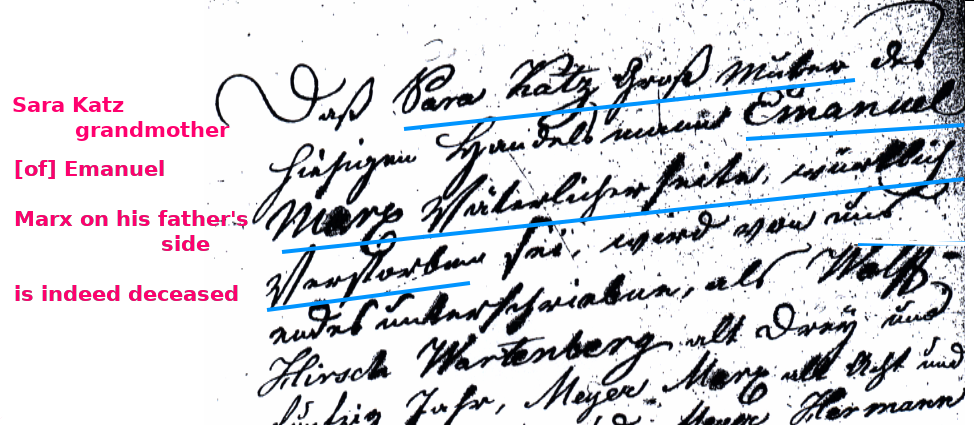 Sara Katz
grandmother
[of] Emanuel
Marx on his father's
side
is indeed deceased
Daß Sara Katz Groß Mutter des
hiesigen Handelsmanns Emanuel
Marx Väterlicher seits, würklich
Verstorben sei, wird von uns
endes unterschriebene, als Wolff
Hirsch Wartenberg alt Dreÿ und
fünfzig Jahr, Meyer Marx alt Acht und
Meyer Hermann